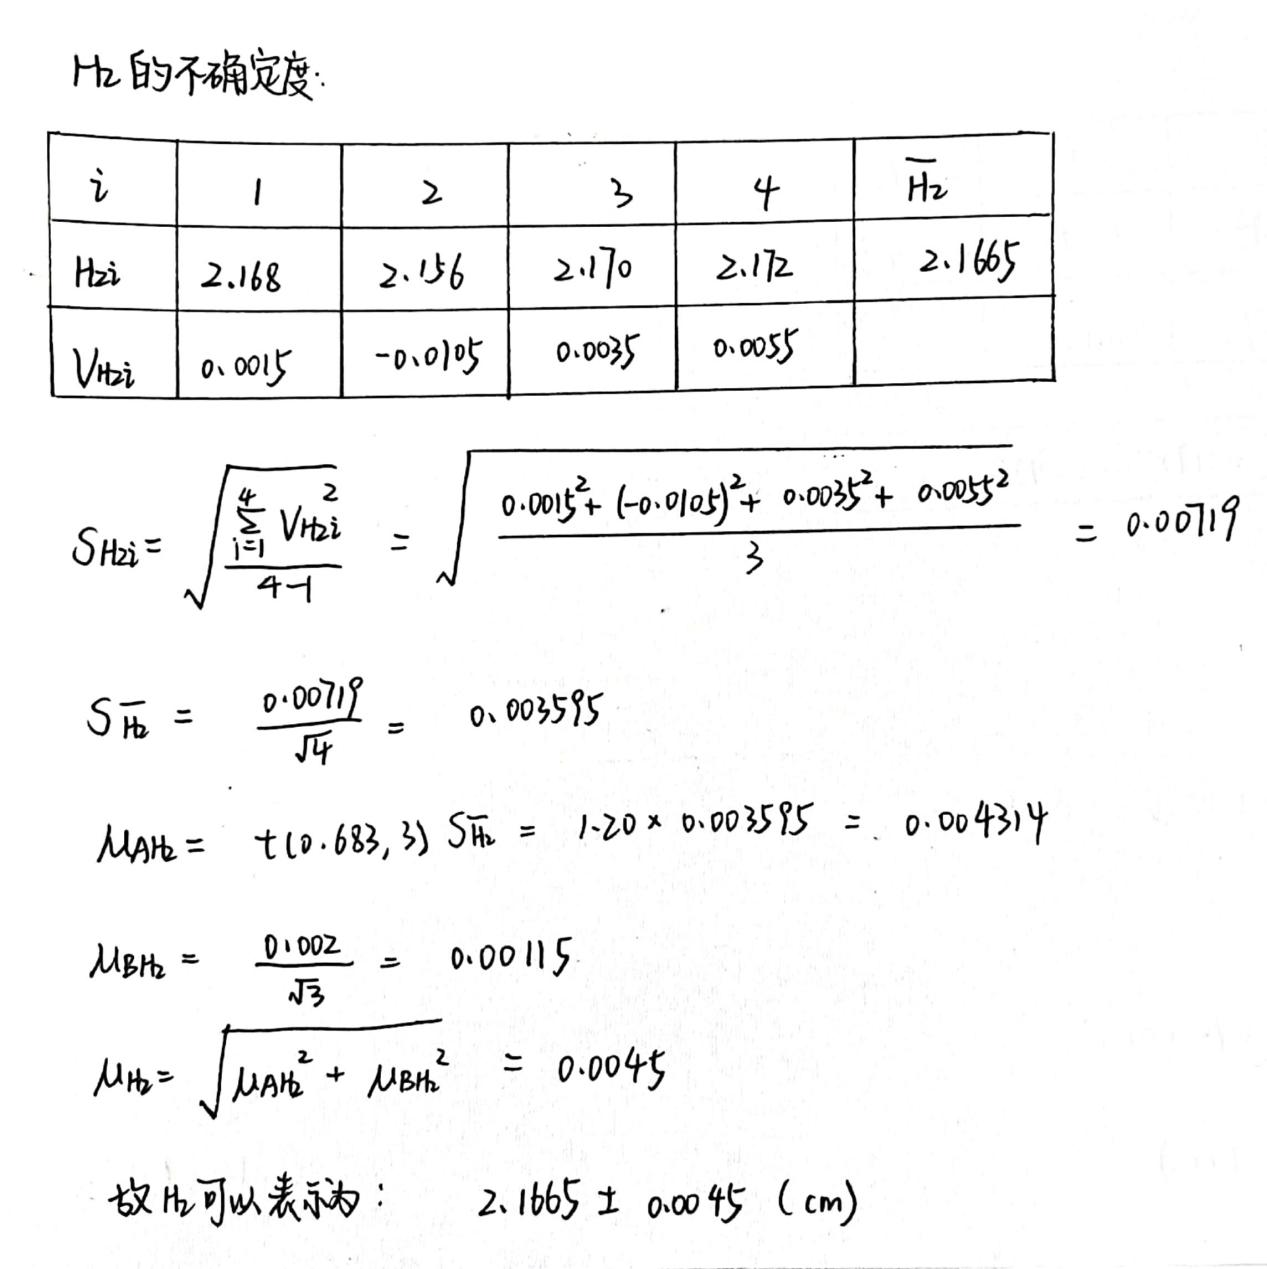 H₂的不确定度:
i 1 2 3 4 H̅₂
H₂ᵢ 2.168 2.156 2.170 2.172 2.1665
V_H₂ᵢ 0.0015 -0.0105 0.0035 0.0055
S_H₂ᵢ = √(∑_{i=1}^{4} V_H₂ᵢ² / (4-1)) = √((0.0015² + (-0.0105)² + 0.0035² + 0.0055²) / 3) = 0.00719
S_H̅₂ = 0.00719/√4 = 0.003595
μ_AH₂ = t(0.683, 3) S_H̅₂ = 1.20 × 0.003595 = 0.004314
μ_BH₂ = 0.002/√3 = 0.00115
μ_H₂ = √(μ_AH₂² + μ_BH₂²) = 0.0045
故H₂可以表示为: 2.1665 ± 0.0045 (cm)